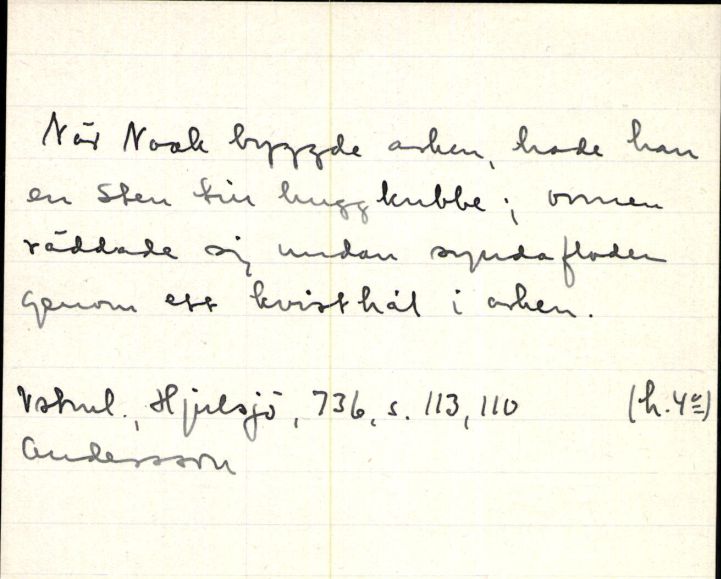 När Noak byggde arken, hade han
en sten till huggkubbe; ormen
räddade sig undan syndafloden
genom ett kvisthål i arken.
Vstml., Hjulsjö, 736, s. 113, 110 (h. 4º)
Andersson